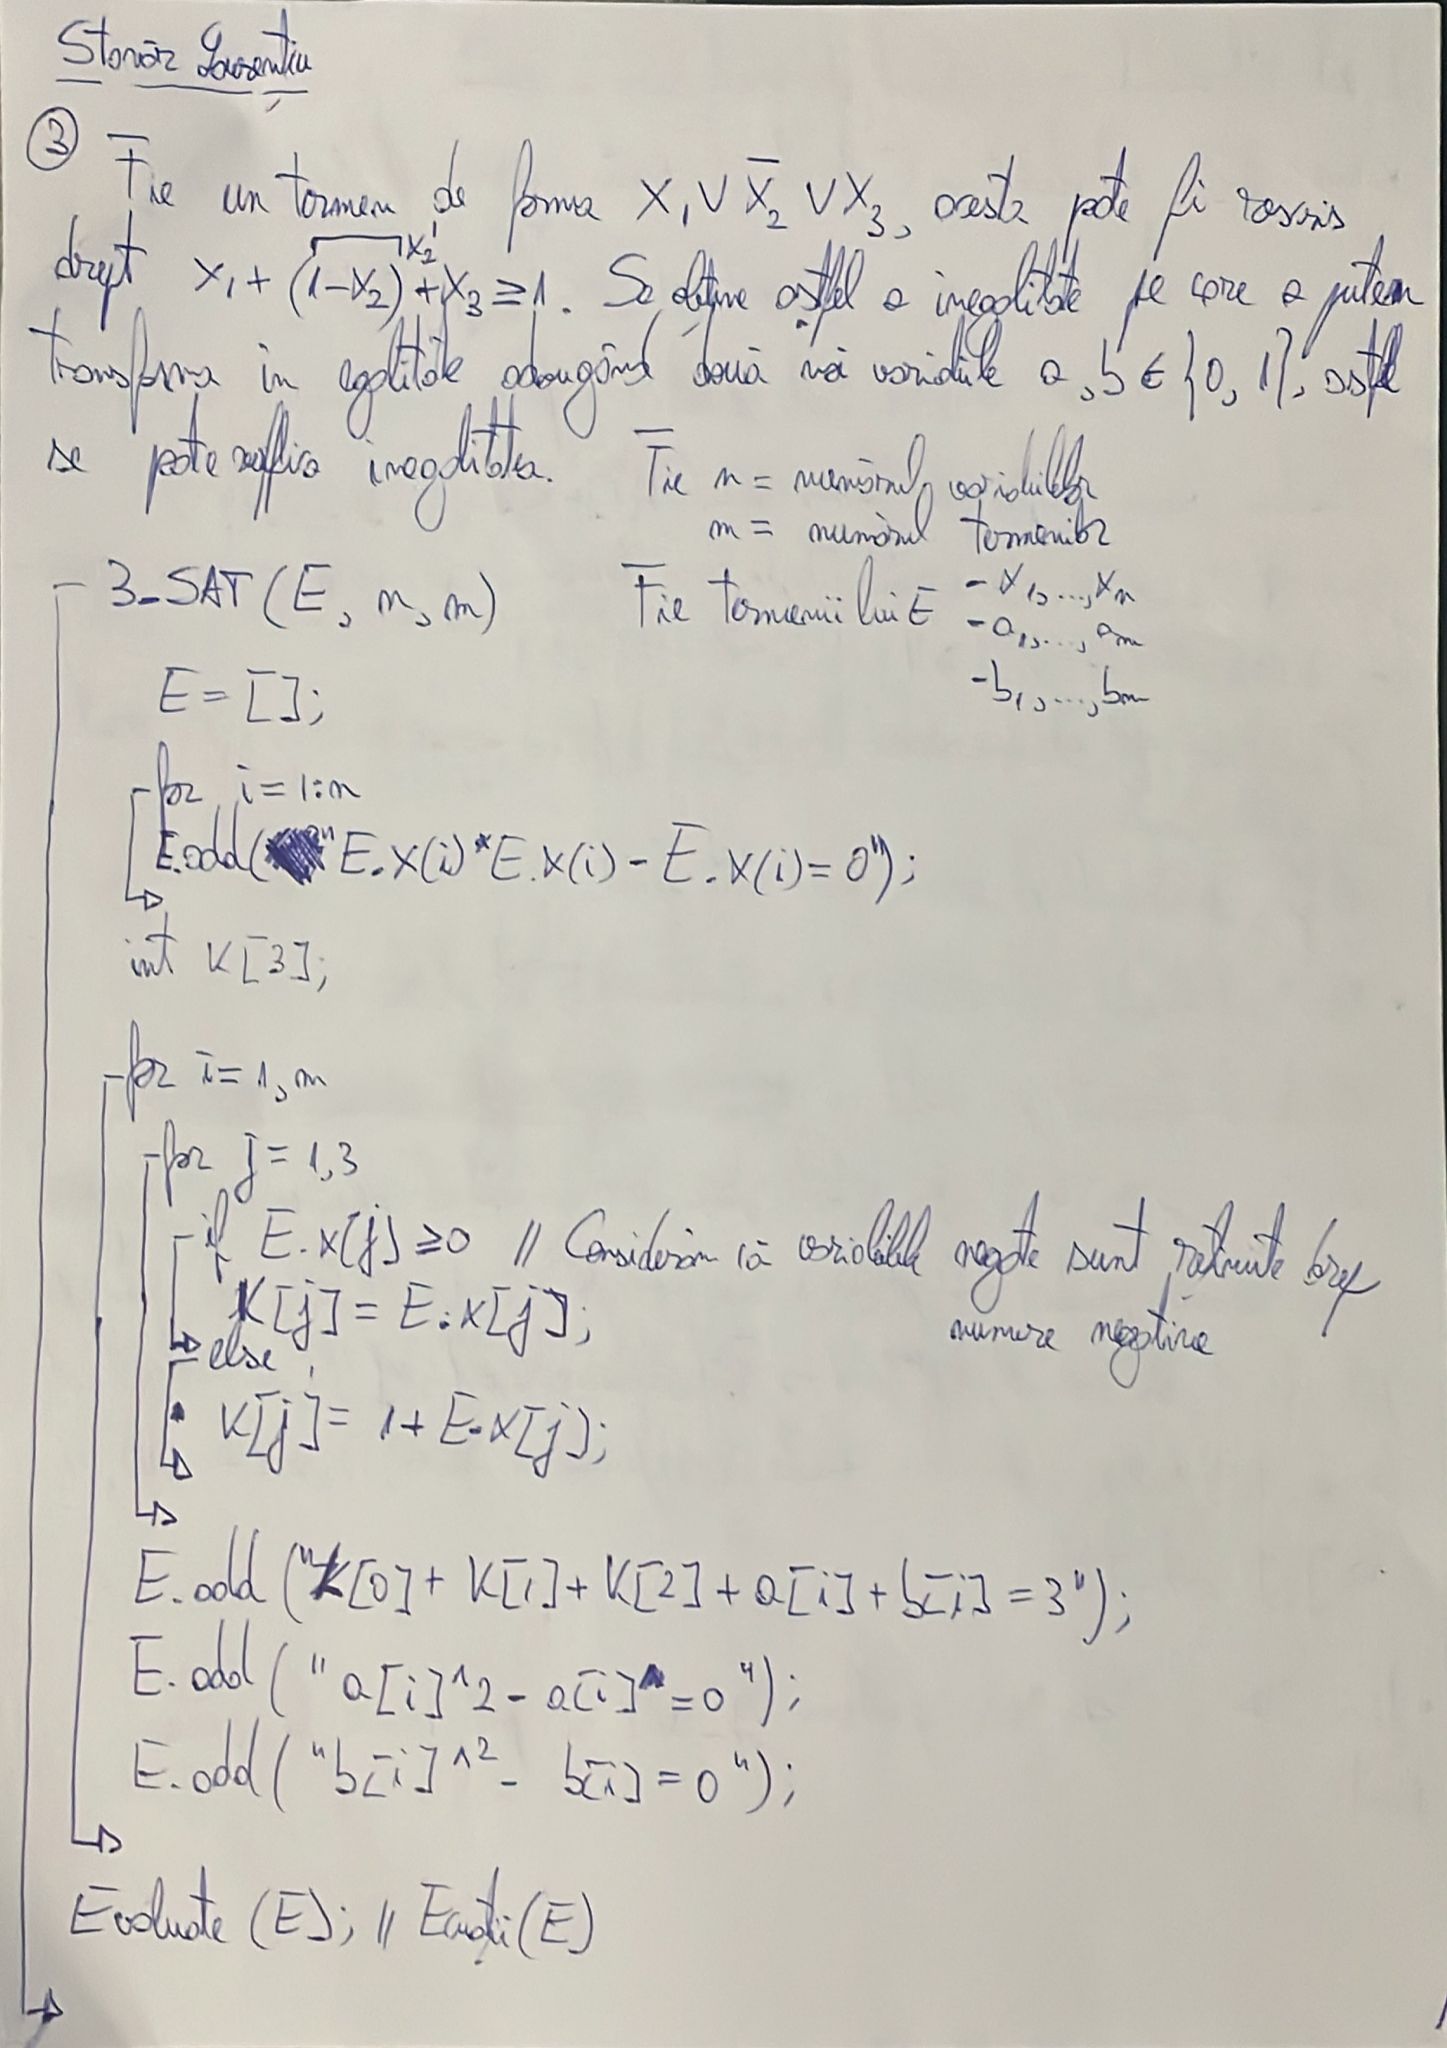 Stovăr Laurențiu
③ Fie un termen de forma x₁ ∨ x̄₂ ∨ x₃, acesta poate fi rescris
drept x₁ + (1-x₂) + x₃ ≥ 1. Se obține astfel o inegalitate pe care o putem
x₂'
transforma în egalitate adăugând două noi variabile a, b ∈ {0, 1}, astfel
se poate inegalitatea.
Fie n = numărul variabilelor
m = numărul termenilor
3-SAT(E, n, m)
Fie termenii lui E - x₁, ..., xₙ
- a₁, ..., aₘ
- b₁, ..., bₘ
E = [];
for i = 1:n
E.add("E.x(i)*E.x(i) - E.x(i) = 0");
int K[3];
for i = 1, m
for j = 1, 3
if E.x[j] ≥ 0 // Considerăm că variabilele negate sunt reținute drept
numere negative
K[j] = E.x[j];
else
K[j] = 1 + E.x[j];
E.add("K[0] + K[1] + K[2] + a[i] + b[i] = 3");
E.add("a[i]^2 - a[i] = 0");
E.add("b[i]^2 - b[i] = 0");
Evaluate(E); // Ecuații(E)